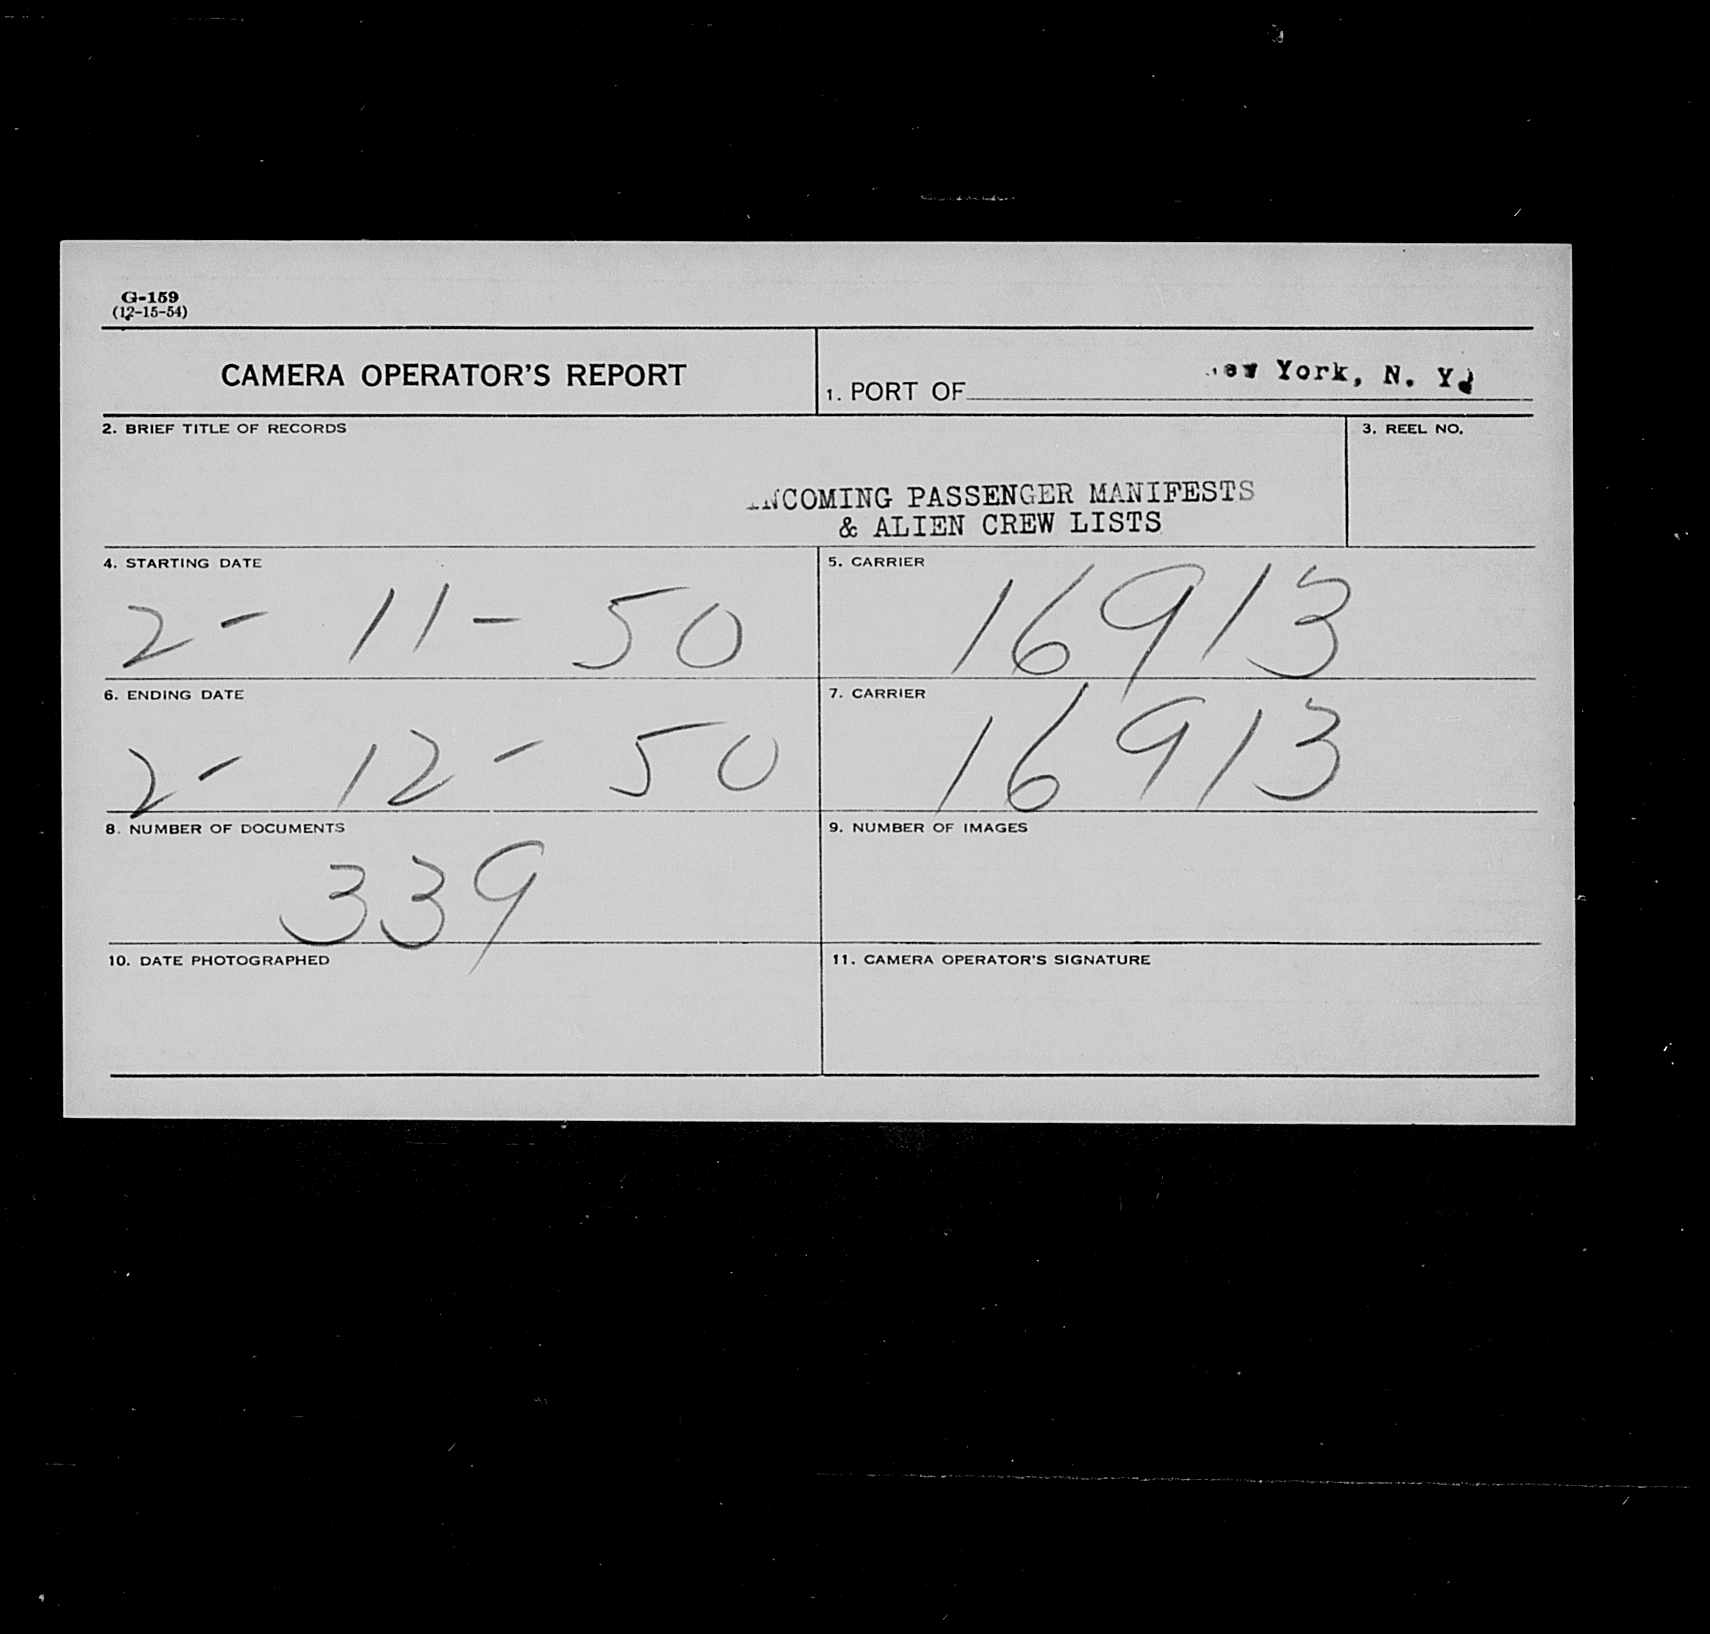 G-159
(12-15-54)
CAMERA OPERATOR'S REPORT
1. PORT OF New York, N. Y.
2. BRIEF TITLE OF RECORDS
3. REEL NO.
INCOMING PASSENGER MANIFESTS
& ALIEN CREW LISTS
4. STARTING DATE
2- 11- 50
5. CARRIER
16913
6. ENDING DATE
2- 12- 50
7. CARRIER
16913
8. NUMBER OF DOCUMENTS
339
9. NUMBER OF IMAGES
10. DATE PHOTOGRAPHED
11. CAMERA OPERATOR'S SIGNATURE